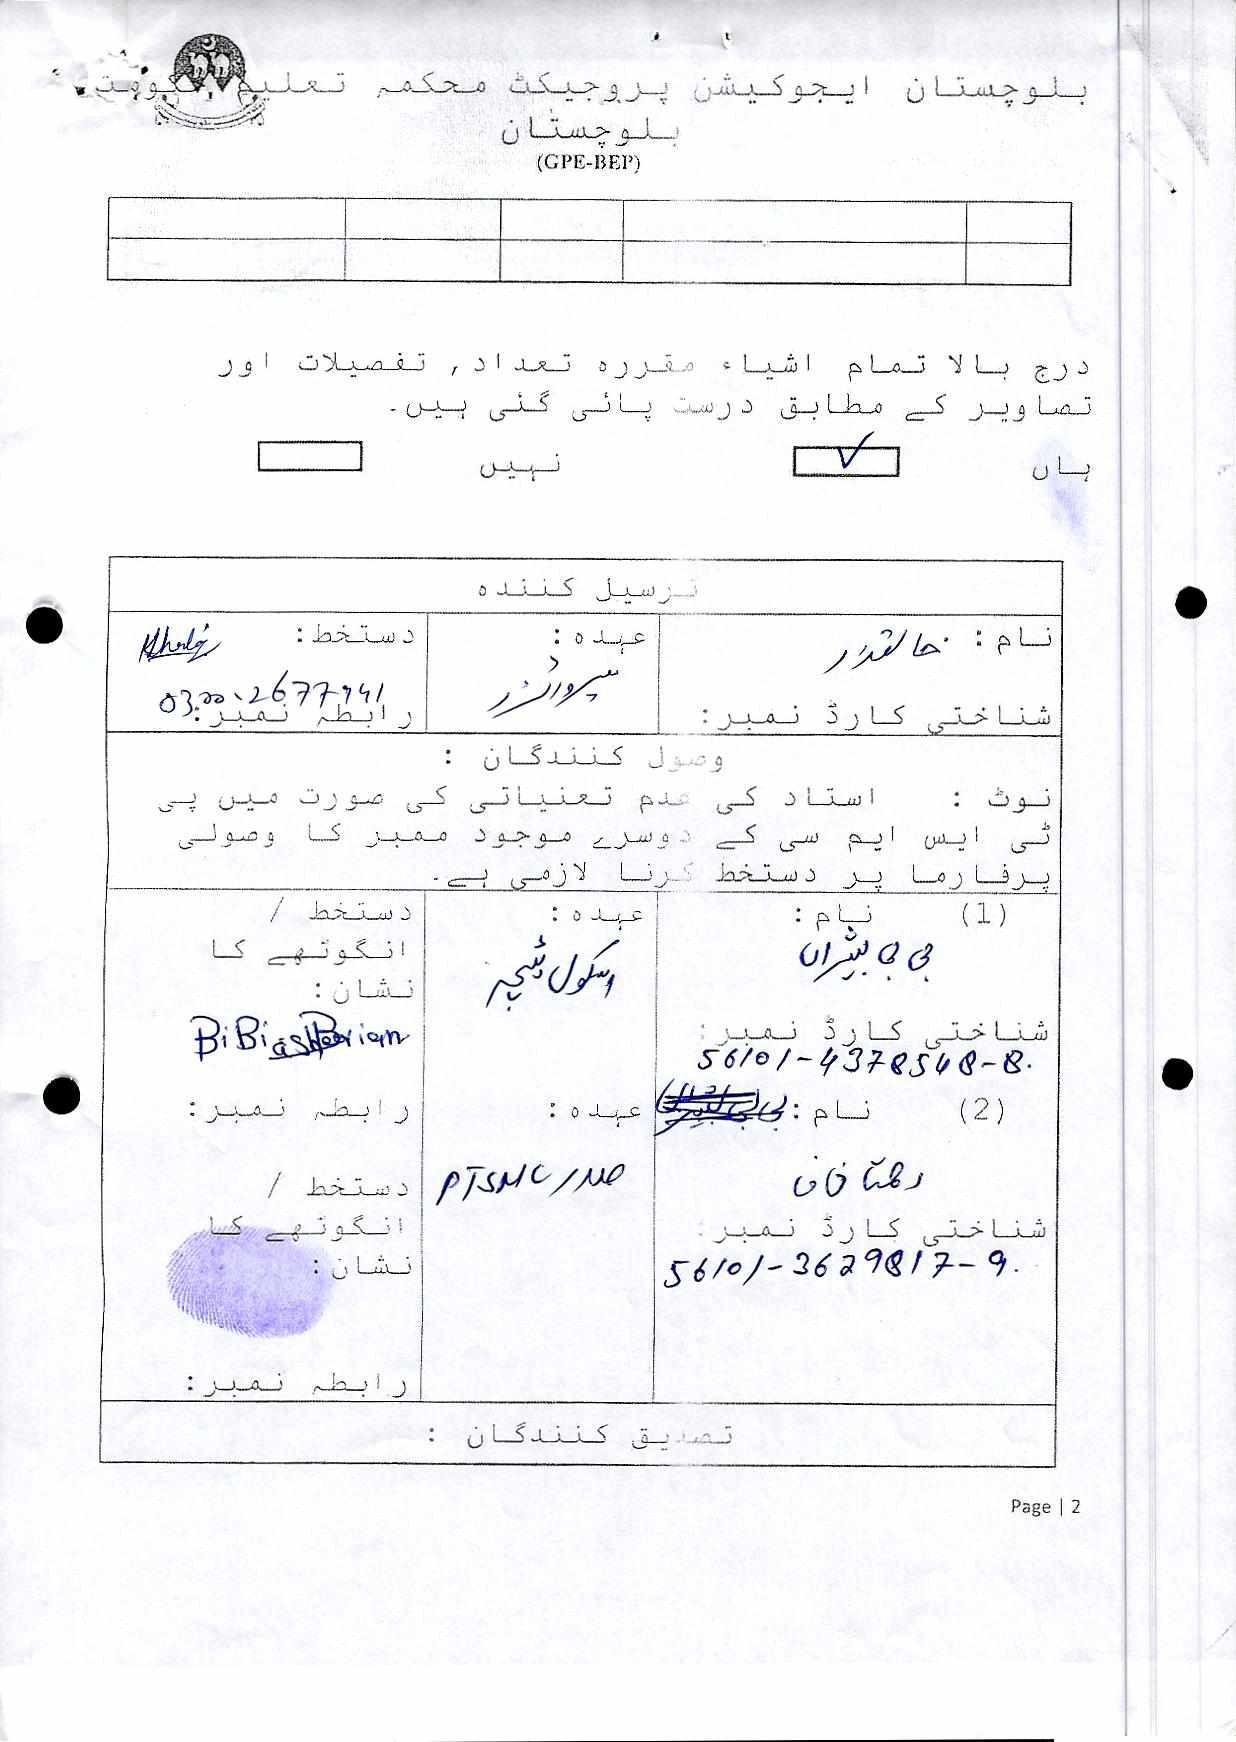 بلوچستان ایجوکیشن پروجیکٹ محکمہ تعلیم حکومت
بلوچستان
(GPE-BEP)
درج بالا تمام اشیاء مقررہ تعداد, تفصیلات اور
تصاویر کے مطابق درست پائی گئی ہیں۔
ہاں ✓ نہیں
ترسیل کنندہ
نام : عہدہ : سپروائزر دستخط :
شناختی کارڈ نمبر : رابطہ نمبر :
وصول کنندگان :
نوٹ : استاد کی عدم تعنیاتی کی صورت میں پی
ٹی ایس ایم سی کے دوسرے موجود ممبر کا وصولی
پرفارما پر دستخط کرنا لازمی ہے۔
(1) نام : عہدہ : دستخط /
انگوٹھے کا
نشان :
بی بی اسکول ٹیچر
BiBi
شناختی کارڈ نمبر :
56101-4378548-8.
(2) نام : عہدہ : رابطہ نمبر :
PTSMC/
دستخط /
انگوٹھے کا
نشان :
شناختی کارڈ نمبر :
56101-3629817-9.
رابطہ نمبر :
تصدیق کنندگان :
Page | 2